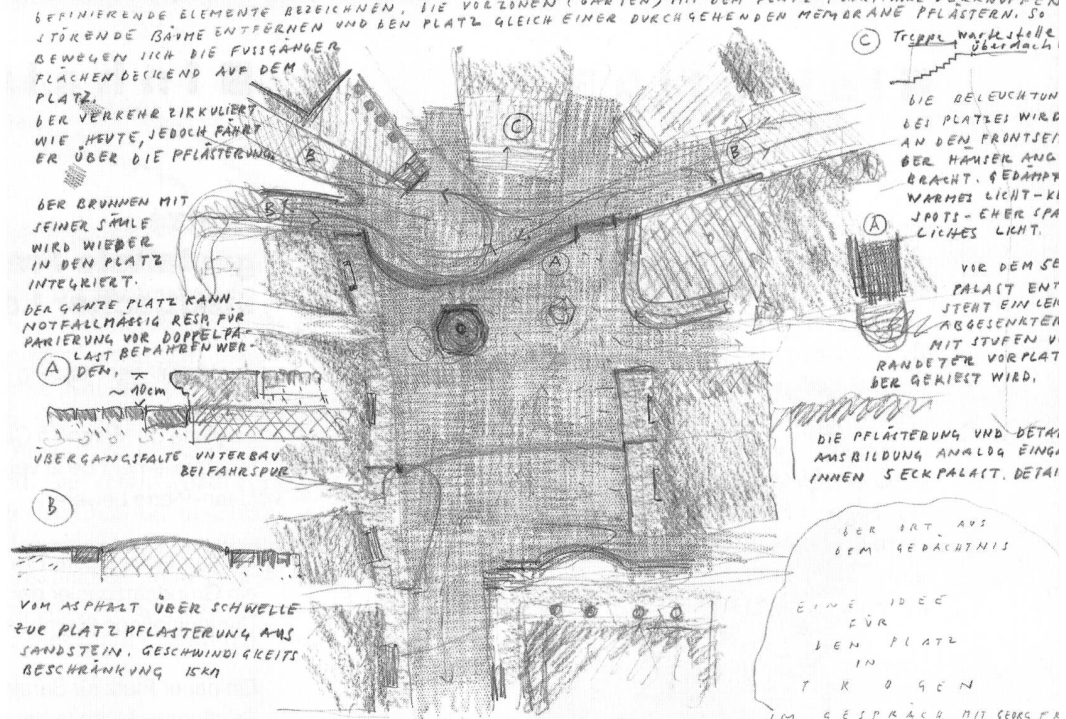 DEFINIERENDE ELEMENTE BEZEICHNEN. DIE VORZONEN (GÄRTEN) MIT DEM PLATZ
STÖRENDE BÄUME ENTFERNEN UND DEN PLATZ GLEICH EINER DURCHGEHENDEN MEMBRANE PFLÄSTERN. SO
BEWEGEN SICH DIE FUSSGÄNGER
FLÄCHENDECKEND AUF DEM
PLATZ.
DER VERKEHR ZIRKULIERT
WIE HEUTE, JEDOCH FÄHRT
ER ÜBER DIE PFLÄSTERUNG.
DER BRUNNEN MIT
SEINER SÄULE
WIRD WIEDER
IN DEN PLATZ
INTEGRIERT.
DER GANZE PLATZ KANN
NOTFALLMÄSSIG RESP. FÜR
PARIERUNG VOR DOPPELPA-
LAST BEFAHREN WER-
DEN.
A
~ 10cm
ÜBERGANGSFALTE UNTERBAU
BEI FAHRSPUR
B
VOM ASPHALT ÜBER SCHWELLE
ZUR PLATZPFLÄSTERUNG AUS
SANDSTEIN. GESCHWINDIGKEITS
BESCHRÄNKUNG 15KM
B
C
B
B
A
C
Treppe wartestelle
überdacht
DIE BELEUCHTUN
DES PLATZES WIRD
AN DEN FRONTSEI
DER HÄUSER ANG
BRACHT. GEDÄMPF
WARMES LICHT-KE
SPOTS - EHER SPÄ
LICHES LICHT.
A
VOR DEM SE
PALAST ENT
STEHT EIN LEI
ABGESENKTER
MIT STUFEN U
RANDETER VORPLAT
DER GEKIEST WIRD.
DIE PFLÄSTERUNG UND DETA
AUSBILDUNG ANALOG EINGA
INNEN SECKPALAST. DETAI
DER ORT AUS
DEM GEDÄCHTNIS
EINE IDEE
FÜR
DEN PLATZ
IN
TROGEN
IM GESPRÄCH MIT GEORG FR